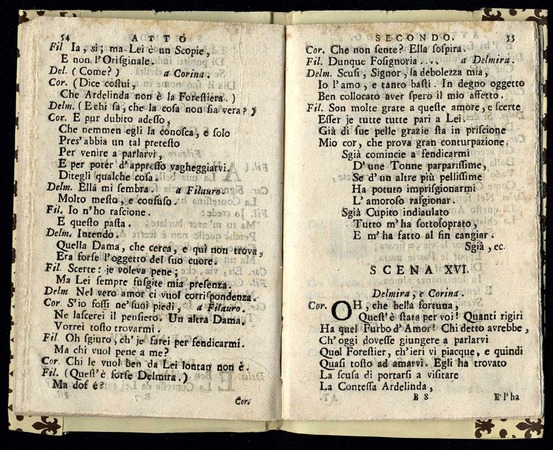 54 ATTO
Fil. Ia, sì; ma Lei è un Scopie,
E non l'Orifginale.
Del. (Come?) a Corina.
Cor. (Dice costui,
Che Ardelinda non è la Forestiera.)
Delm. (E chi sa, che la cosa non sia vera?)
Cor. E pur dubito adesso,
Che nemmen egli la conosca, e solo
Pres'abbia un tal pretesto
Per venire a parlarvi,
E per poter d'appresso vagheggiarvi.
Ditegli qualche cosa.
Delm. Ella mi sembra. a Filauro.
Molto mesto, e confuso.
Fil. Io n'ho rascione.
E questo pasta.
Delm. Intendo.
Quella Dama, che cerca, e qui non trova,
Era forse l'oggetto del suo cuore.
Fil. Scerte: je voleva pene;
Ma Lei sempre fusgite mia presenza.
Delm. Nel vero amor ci vuol corrispondenza.
Cor. S'io fossi ne' suoi piedi, a Filauro.
Ne lascerei il pensiero. Un altra Dama,
Vorrei tosto trovarmi.
Fil. Oh sgiuro, ch'je farei per sendicarmi.
Ma chi vuol pene a me?
Cor. Chi le vuol ben da Lei lontan non è.
Fil. (Quest'è forse Delmira.)
Ma dof é?
Cor.
SECONDO. 55
Cor. Che non sente? Ella sospira.
Fil. Dunque Fosignoria .... a Delmira.
Delm. Scusi, Signor, la debolezza mia,
Io l'amo, e tanto basti. In degno oggetto
Ben collocato aver spero il mio affetto.
Fil. Son molte grate a queste amore, e scerte
Esser je tutte tutte pari a Lei.
Già di sue pelle grazie sta in priscione
Mio cor, che prova gran conturpazione.
Sgià comincie a sendicarmi
D'une Tonne parparissime,
Se d'un altre più pellissime
Ha potuto imprisgionarmi
L'amoroso rasgionar.
Sgià Cupito indiaulato
Tutto m'ha sottosoprato,
E m'ha fatto al fin cangiar.
Sgià, ec.
SCENA XVI.
Delmira, e Corina.
Cor. OH, che bella fortuna,
Quest'è stata per voi! Quanti rigiri
Ha quel Furbo d'Amor! Chi detto avrebbe,
Ch'oggi dovesse giungere a parlarvi
Quel Forestier, ch'ieri vi piacque, e quindi
Quasi tosto ad amarvi. Egli ha trovato
La scusa di portarsi a visitare
La Contessa Ardelinda,
B 8 E l'ha